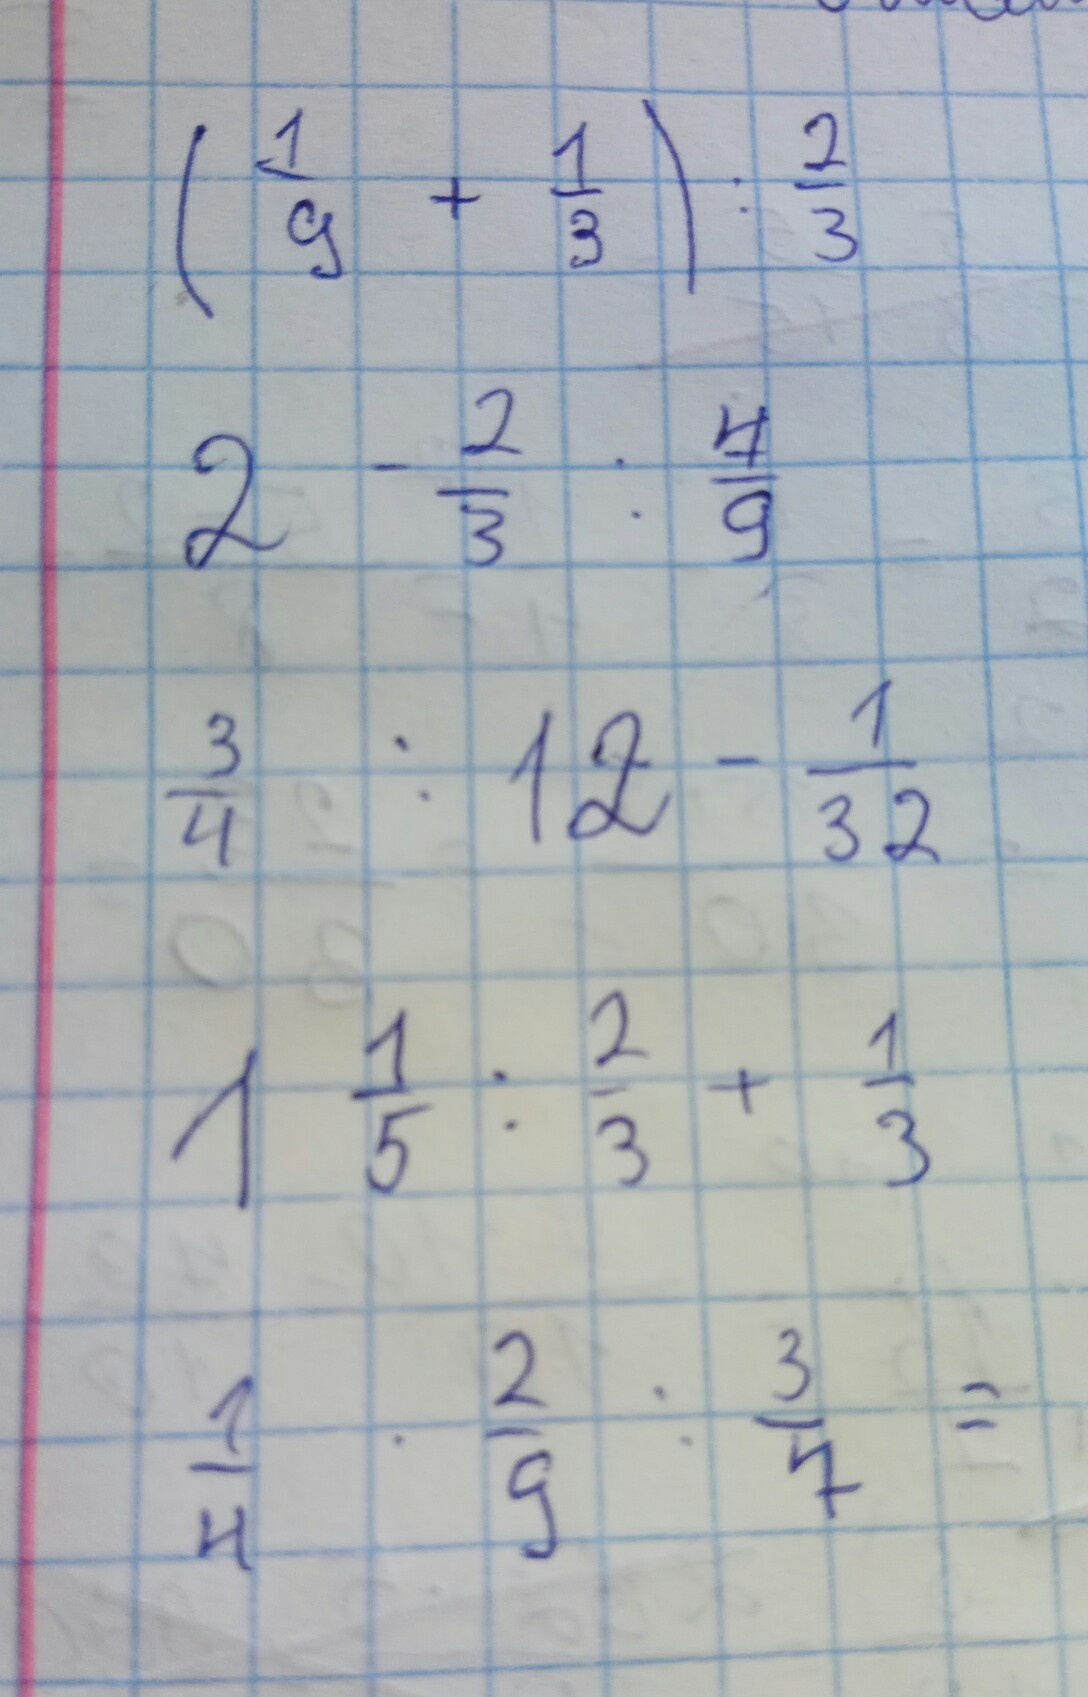 (1/9 + 1/3) : 2/3
2 - 2/3 : 4/9
3/4 : 12 - 1/32
1 1/5 : 2/3 + 1/3
1/4 · 2/9 : 3/7 =